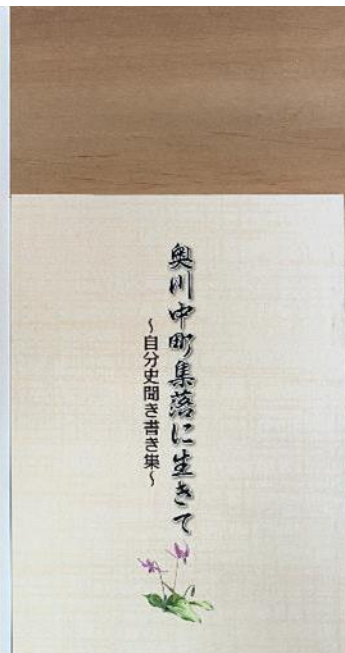 奥川中町集落に生きて
～自分史聞き書き集～